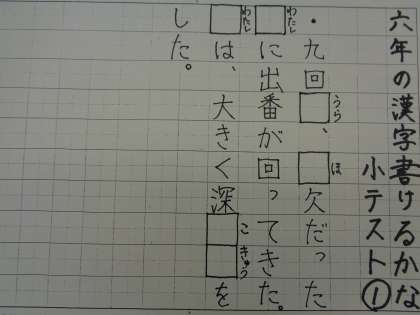 六年の漢字書けるかな
小テスト①
・九回□うら、□ほ欠だった
□わたしに出番が回ってきた。
□わたしは、大きく深□こ□きゅうを
した。